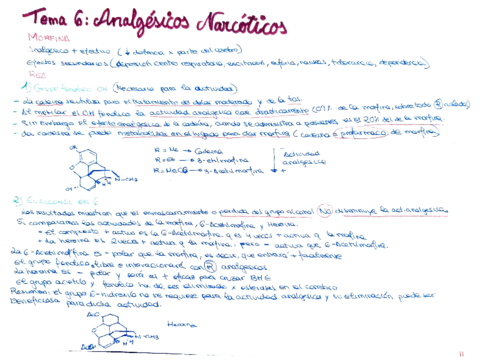 Tema 6: Analgésicos Narcóticos
MORFINA
Analgésico + efectivo (↓ distancia a parte del cerebro)
Efectos secundarios (depresión centro respiratorio, excitación, euforia, náuseas, tolerancia, dependencia)
REA
1) Grupo fenólico OH (Necesario para la actividad)
- La codeína se utiliza para el tratamiento del dolor moderado y de la tos.
- Al metilar el OH fenólico la actividad analgésica cae drásticamente (0'1% de la morfina, sobre todo
- Sin embargo el efecto analgésico de la codeína, cuando se administra a pacientes, es el 20% del de la morfina
- La codeína se puede metabolizar en el hígado para dar morfina (codeína es profármaco de morfina)
RO
R = Me → Codeína
R = Et → 3-etilmorfina
R = MeCO → 3-acetilmorfina
Actividad analgésica
- +
N-CH3
2) Alcohol en 6
Los resultados muestran que el enmascaramiento o pérdida del grupo alcohol NO disminuye la act. analgésica
Si comparamos las actividades de la morfina, 6-Acetilmorfina y Heroína.
• El compuesto + activo es la 6-Acetilmorfina, q es 4 veces + activa q la morfina.
• La heroína es 2 veces + activa q la morfina, pero - activa que 6-Acetilmorfina.
La 6-Acetilmorfina es - polar que la morfina, es decir, que entrará + fácilmente
El grupo fenólico libre e interaccionará con R analgésicos.
La heroína es - polar y será el + eficaz para cruzar BHE
El grupo acetilo y fenólico ha de ser eliminado x esterasas en el cerebro
Resumen: el grupo 6-hidroxilo no se requiere para la actividad analgésica y su eliminación puede ser
beneficiosa para dicha actividad.
AcO
Heroína
N-CH3
H
AcO
11